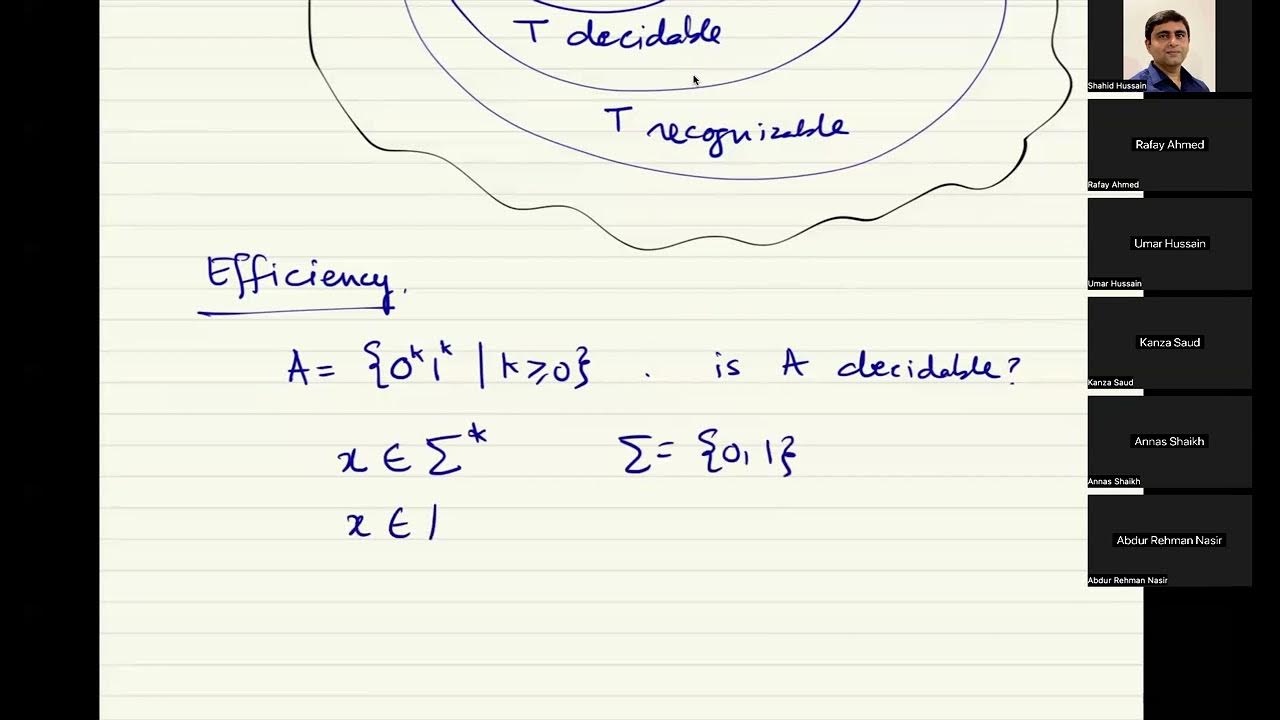 T decidable
T recognizable
Efficiency.
A = {0ᵏ1ᵏ | k ≥ 0} . is A decidable?
x ∈ Σ* Σ = {0, 1}
x ∈ |
Shahid Hussain
Rafay Ahmed
Rafay Ahmed
Umar Hussain
Umar Hussain
Kanza Saud
Kanza Saud
Annas Shaikh
Annas Shaikh
Abdur Rehman Nasir
Abdur Rehman Nasir